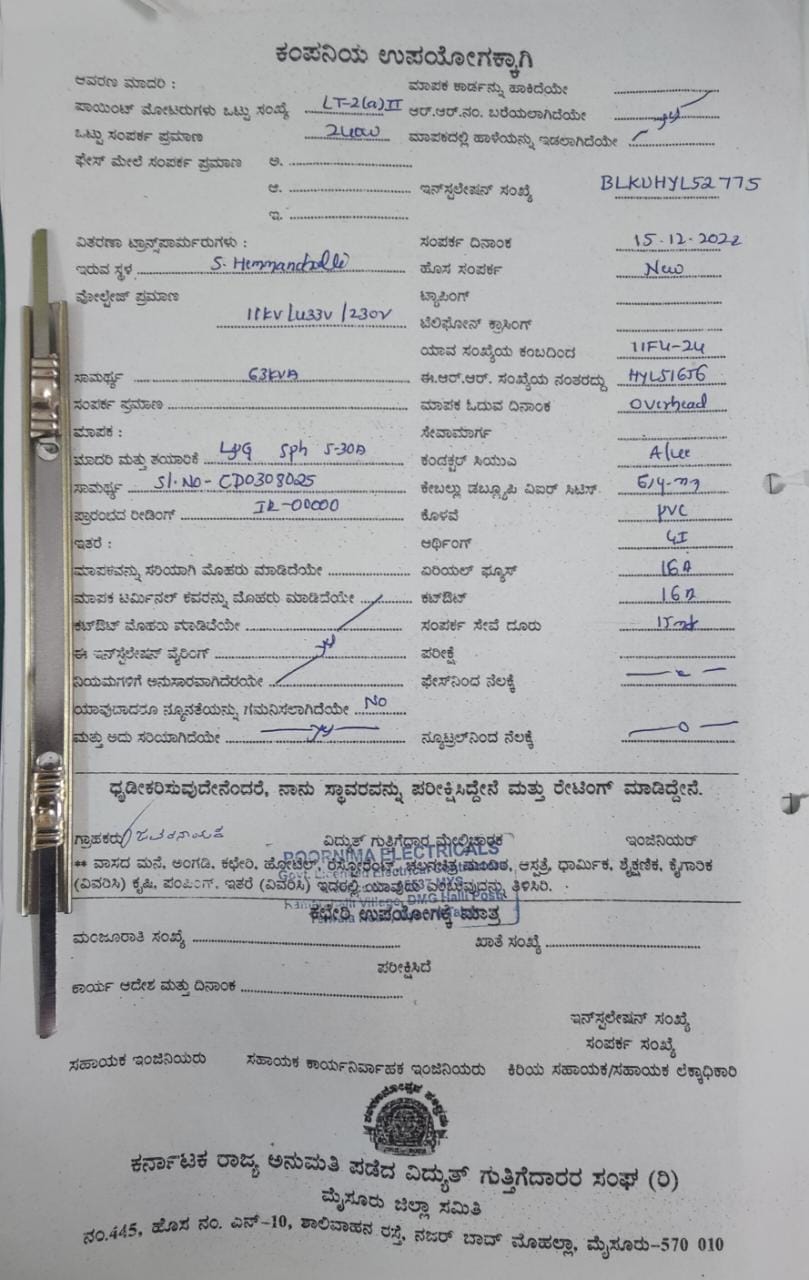 ಕಂಪನಿಯ ಉಪಯೋಗಕ್ಕಾಗಿ
ಆವರಣ ಮಾದರಿ : ಮಾಪಕ ಕಾರ್ಡನ್ನು ಹಾಕಿದೆಯೇ
ಪಾಯಿಂಟ್ ಮೋಟರುಗಳು ಒಟ್ಟು ಸಂಖ್ಯೆ LT-2(a)II ಆರ್.ಆರ್.ನಂ. ಬರೆಯಲಾಗಿದೆಯೇ
ಒಟ್ಟು ಸಂಪರ್ಕ ಪ್ರಮಾಣ ಮಾಪಕದಲ್ಲಿ ಹಾಳೆಯನ್ನು ಇಡಲಾಗಿದೆಯೇ
ಫೇಸ್ ಮೇಲೆ ಸಂಪರ್ಕ ಪ್ರಮಾಣ ಅ.
ಆ. ಇನ್‌ಸ್ಟಲೇಷನ್ ಸಂಖ್ಯೆ BLKUHYL52775
ಇ.
ವಿತರಣಾ ಟ್ರಾನ್ಸ್‌ಪಾರ್ಮರುಗಳು : ಸಂಪರ್ಕ ದಿನಾಂಕ 15-12-2022
ಇರುವ ಸ್ಥಳ S. ಹೊಸ ಸಂಪರ್ಕ New
ವೋಲ್ಟೇಜ್ ಪ್ರಮಾಣ ಟ್ಯಾಪಿಂಗ್
11KV/433V/230V ಟೆಲಿಫೋನ್ ಕ್ರಾಸಿಂಗ್
ಯಾವ ಸಂಖ್ಯೆಯ ಕಂಬದಿಂದ 11F4-24
ಸಾಮರ್ಥ್ಯ 63KVA ಈ.ಆರ್.ಆರ್. ಸಂಖ್ಯೆಯ ನಂತರದ್ದು HYL51656
ಸಂಪರ್ಕ ಪ್ರಮಾಣ ಮಾಪಕ ಓದುವ ದಿನಾಂಕ Overhead
ಮಾಪಕ : ಸೇವಾಮಾರ್ಗ
ಮಾದರಿ ಮತ್ತು ತಯಾರಿಕೆ L&G Sph 5-30A ಕಂಡಕ್ಟರ್ ಸಿಯುಎ
ಸಾಮರ್ಥ್ಯ Sl.No- CD0308025 ಕೇಬಲ್ಲು ಡಬ್ಲ್ಯೂಪಿ ವಿಐರ್ ಸಿಟಿಸ್
ಪ್ರಾರಂಭದ ರೀಡಿಂಗ್ IR-00000 ಕೊಳವೆ PVC
ಇತರೆ : ಆರ್ಥಿಂಗ್ GI
ಮಾಪಕವನ್ನು ಸರಿಯಾಗಿ ಮೊಹರು ಮಾಡಿದೆಯೇ ಏರಿಯಲ್ ಫ್ಯೂಸ್ 16A
ಮಾಪಕ ಟರ್ಮಿನಲ್ ಕವರನ್ನು ಮೊಹರು ಮಾಡಿದೆಯೇ ಕಟ್‌ಔಟ್ 16A
ಕಟ್‌ಔಟ್ ಮೊಹರು ಮಾಡಿದೆಯೇ ಸಂಪರ್ಕ ಸೇವೆ ದೂರು
ಈ ಇನ್‌ಸ್ಟಲೇಷನ್ ವೈರಿಂಗ್ ಪರೀಕ್ಷೆ
ನಿಯಮಗಳಿಗೆ ಅನುಸಾರವಾಗಿದೆರಯೇ ಫೇಸ್‌ನಿಂದ ನೆಲಕ್ಕೆ
ಯಾವುದಾದರೂ ನ್ಯೂನತೆಯನ್ನು ಗಮನಿಸಲಾಗಿದೆಯೇ No
ಮತ್ತು ಅದು ಸರಿಯಾಗಿದೆಯೇ ನ್ಯೂಟ್ರಲ್‌ನಿಂದ ನೆಲಕ್ಕೆ
ಧೃಡೀಕರಿಸುವುದೇನೆಂದರೆ, ನಾನು ಸ್ಥಾವರವನ್ನು ಪರೀಕ್ಷಿಸಿದ್ದೇನೆ ಮತ್ತು ರೇಟಿಂಗ್ ಮಾಡಿದ್ದೇನೆ.
ಗ್ರಾಹಕರು ವಿದ್ಯುತ್ ಗುತ್ತಿಗೆದಾರ ಮೇಲ್ವಿಚಾರಕ ಇಂಜಿನಿಯರ್
POORNIMA ELECTRICALS
** ವಾಸದ ಮನೆ, ಅಂಗಡಿ, ಕಛೇರಿ, ಹೋಟೆಲ್, ರೆಸ್ಟೋರೆಂಟ್, ಚಲನಚಿತ್ರ ಮಂದಿರ, ಆಸ್ಪತ್ರೆ, ಧಾರ್ಮಿಕ, ಶೈಕ್ಷಣಿಕ, ಕೈಗಾರಿಕ
(ವಿವರಿಸಿ) ಕೃಷಿ, ಪಂಪಿಂಗ್, ಇತರೆ (ವಿವರಿಸಿ) ಇದರಲ್ಲಿ ಯಾವುದು ಎಂಬುವುದನ್ನು ತಿಳಿಸಿರಿ.
ಕಛೇರಿ ಉಪಯೋಗಕ್ಕೆ ಮಾತ್ರ
ಮಂಜೂರಾತಿ ಸಂಖ್ಯೆ ಖಾತೆ ಸಂಖ್ಯೆ
ಪರೀಕ್ಷಿಸಿದೆ
ಕಾರ್ಯ ಆದೇಶ ಮತ್ತು ದಿನಾಂಕ
ಇನ್‌ಸ್ಟಲೇಷನ್ ಸಂಖ್ಯೆ
ಸಂಪರ್ಕ ಸಂಖ್ಯೆ
ಸಹಾಯಕ ಇಂಜಿನಿಯರು ಸಹಾಯಕ ಕಾರ್ಯನಿರ್ವಾಹಕ ಇಂಜಿನಿಯರು ಕಿರಿಯ ಸಹಾಯಕ/ಸಹಾಯಕ ಲೆಕ್ಕಾಧಿಕಾರಿ
ಕರ್ನಾಟಕ ರಾಜ್ಯ ಅನುಮತಿ ಪಡೆದ ವಿದ್ಯುತ್ ಗುತ್ತಿಗೆದಾರರ ಸಂಘ (ರಿ)
ಮೈಸೂರು ಜಿಲ್ಲಾ ಸಮಿತಿ
ನಂ.445, ಹೊಸ ನಂ. ಎನ್-10, ಶಾಲಿವಾಹನ ರಸ್ತೆ, ನಜರ್ ಬಾದ್ ಮೊಹಲ್ಲಾ, ಮೈಸೂರು-570 010